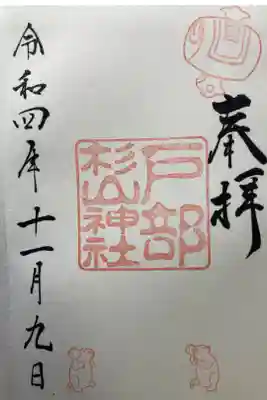 奉拝
戸部
杉山神社
令和四年十一月九日